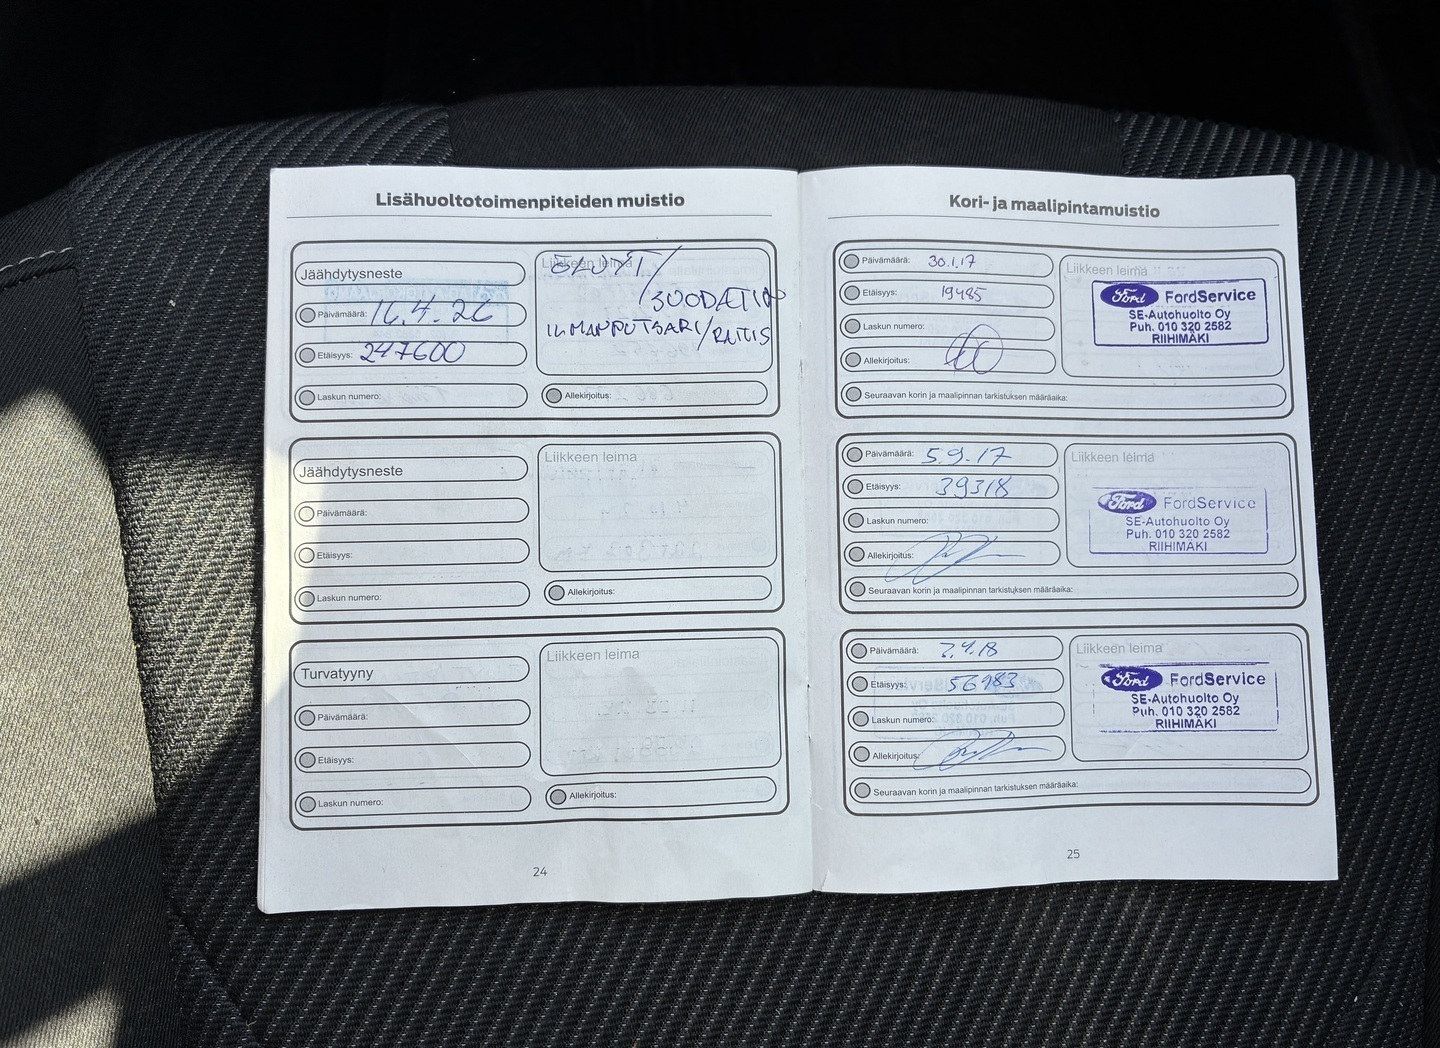 Lisähuoltotoimenpiteiden muistio
Jäähdytysneste
Päivämäärä: 16.4.26
Etäisyys: 247600
Laskun numero:
Liikkeen leima
ÖLJYT/
SUODATIN
ILMANPUTSARI/RAITIS
Allekirjoitus:
Jäähdytysneste
Päivämäärä:
Etäisyys:
Laskun numero:
Liikkeen leima
Allekirjoitus:
Turvatyyny
Päivämäärä:
Etäisyys:
Laskun numero:
Liikkeen leima
Allekirjoitus:
24
Kori- ja maalipintamuistio
Päivämäärä: 30.1.17
Etäisyys: 19485
Laskun numero:
Allekirjoitus:
Seuraavan korin ja maalipinnan tarkistuksen määräaika:
Liikkeen leima
Ford FordService
SE-Autohuolto Oy
Puh. 010 320 2582
RIIHIMÄKI
Päivämäärä: 5.9.17
Etäisyys: 39318
Laskun numero:
Allekirjoitus:
Seuraavan korin ja maalipinnan tarkistuksen määräaika:
Liikkeen leima
Ford FordService
SE-Autohuolto Oy
Puh. 010 320 2582
RIIHIMÄKI
Päivämäärä: 3.4.18
Etäisyys: 56983
Laskun numero:
Allekirjoitus:
Seuraavan korin ja maalipinnan tarkistuksen määräaika:
Liikkeen leima
Ford FordService
SE-Autohuolto Oy
Puh. 010 320 2582
RIIHIMÄKI
25